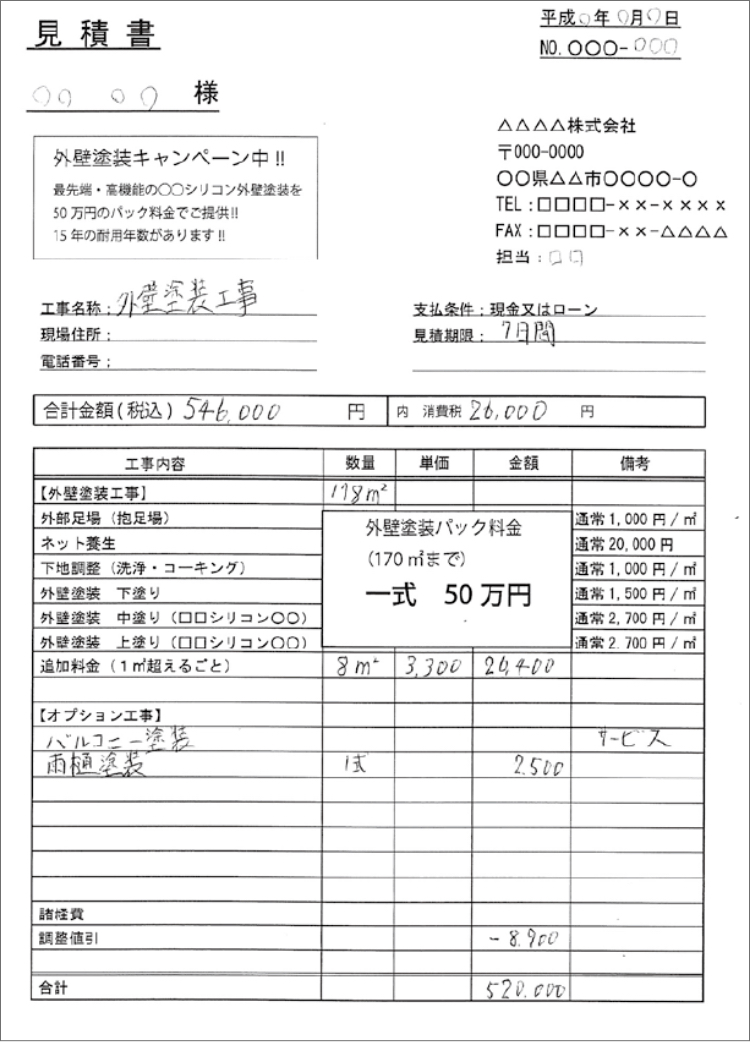 見積書
平成○年○月○日
NO.○○○-○○○
○○ ○○ 様
外壁塗装キャンペーン中!!
最先端・高機能の○○シリコン外壁塗装を
50万円のパック料金でご提供!!
15年の耐用年数があります!!
△△△△株式会社
〒000-0000
○○県△△市○○○○-○
TEL:□□□□-××-××××
FAX:□□□□-××-△△△△
担当:□□
工事名称:外壁塗装工事
現場住所:
電話番号:
支払条件:現金又はローン
見積期限:7日間
合計金額(税込) 546,000 円 内 消費税 26,000 円
工事内容 数量 単価 金額 備考
【外壁塗装工事】 178㎡
外部足場(抱足場) 通常1,000円/㎡
ネット養生 通常20,000円
下地調整(洗浄・コーキング) 通常1,000円/㎡
外壁塗装 下塗り 通常1,500円/㎡
外壁塗装 中塗り(□□シリコン○○) 通常2,700円/㎡
外壁塗装 上塗り(□□シリコン○○) 通常2.700円/㎡
外壁塗装パック料金
(170㎡まで)
一式 50万円
追加料金(1㎡超えるごと) 8㎡ 3,300 26,400
【オプション工事】
バルコニー塗装 サービス
雨樋塗装 1式 2.500
諸経費
調整値引 -8.900
合計 520.000